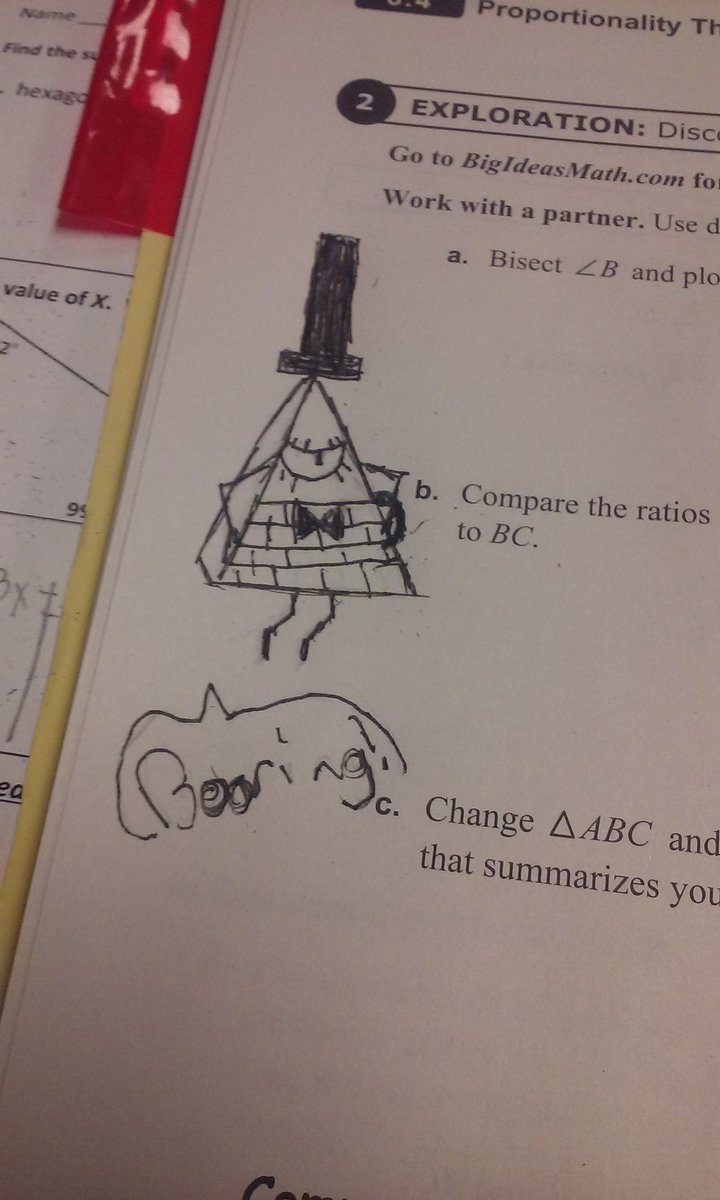 Name
Find the su
hexago
value of X.
2°
99
3x +
8.4 Proportionality Th
2 EXPLORATION: Disc
Go to BigIdeasMath.com for
Work with a partner. Use d
a. Bisect ∠B and plo
b. Compare the ratios
to BC.
Booring!
c. Change △ABC and
that summarizes you